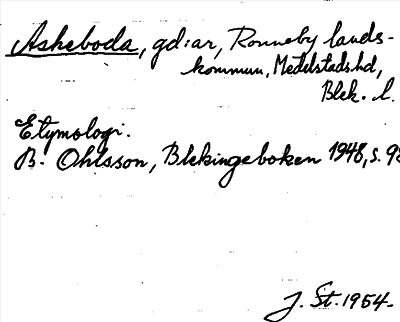 Askeboda, gdiar, Ronneby lands-
kommun, Medelstads hd,
Blek. l.
Etymologi.
B. Ohlsson, Blekingeboken 1948, s. 98
J. St. 1954.